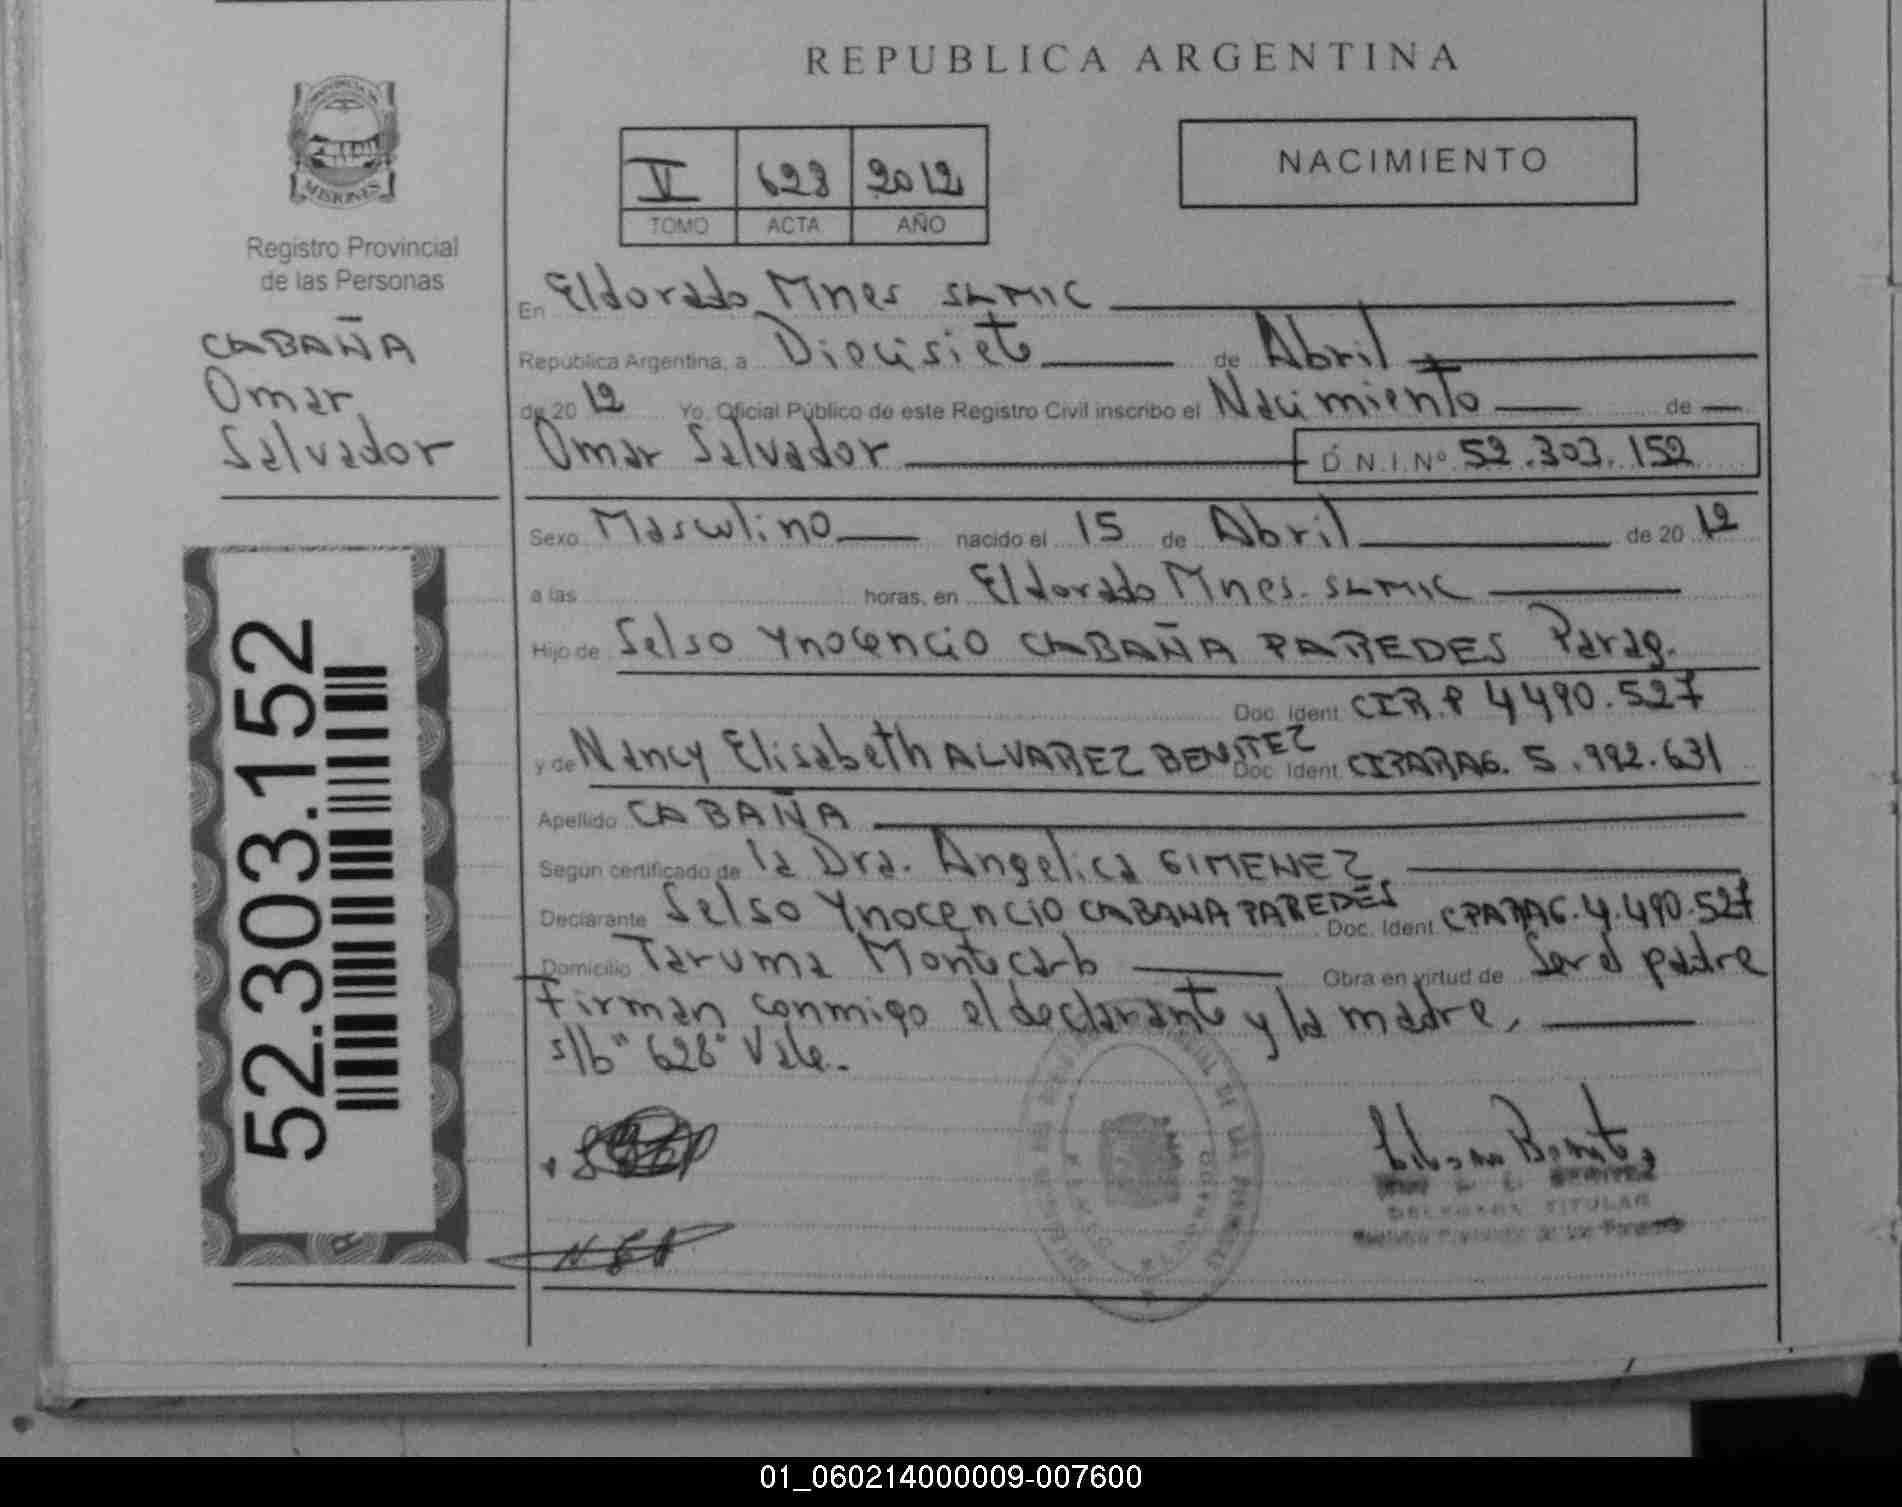 REPUBLICA ARGENTINA
PROVINCIA DE
MISIONES
Registro Provincial
de las Personas
CABAÑA
Omar
Salvador
52.303.152
V 628 2012
TOMO ACTA AÑO
NACIMIENTO
En Eldorado Mnes SLMIC
República Argentina, a Diecisiete de Abril
de 20 12 Yo, Oficial Público de este Registro Civil inscribo el Nacimiento de
Omar Salvador D.N.I.Nº 52.303.152
Sexo Masculino nacido el 15 de Abril de 20 12
a las horas, en Eldorado Mnes. SLMIC
Hijo de Selso Ynocencio CABAÑA PAREDES Parag.
Doc. Ident CIR.P 4490.527
y de Nancy Elisabeth ALVAREZ BENITEZ Doc. Ident CIPARAG. 5.992.631
Apellido CABAÑA
Según certificado de la Dra. Angelica GIMENEZ
Declarante Selso Ynocencio CABAÑA PAREDES Doc. Ident CPARAG.4.490.527
Domicilio Taruma Montecarlo Obra en virtud de Ser el padre
Firman conmigo el declarante y la madre,
s/b "628" Vale.-
BENITEZ
DELEGADA TITULAR
Registro Provincial de las Personas
01_060214000009-007600